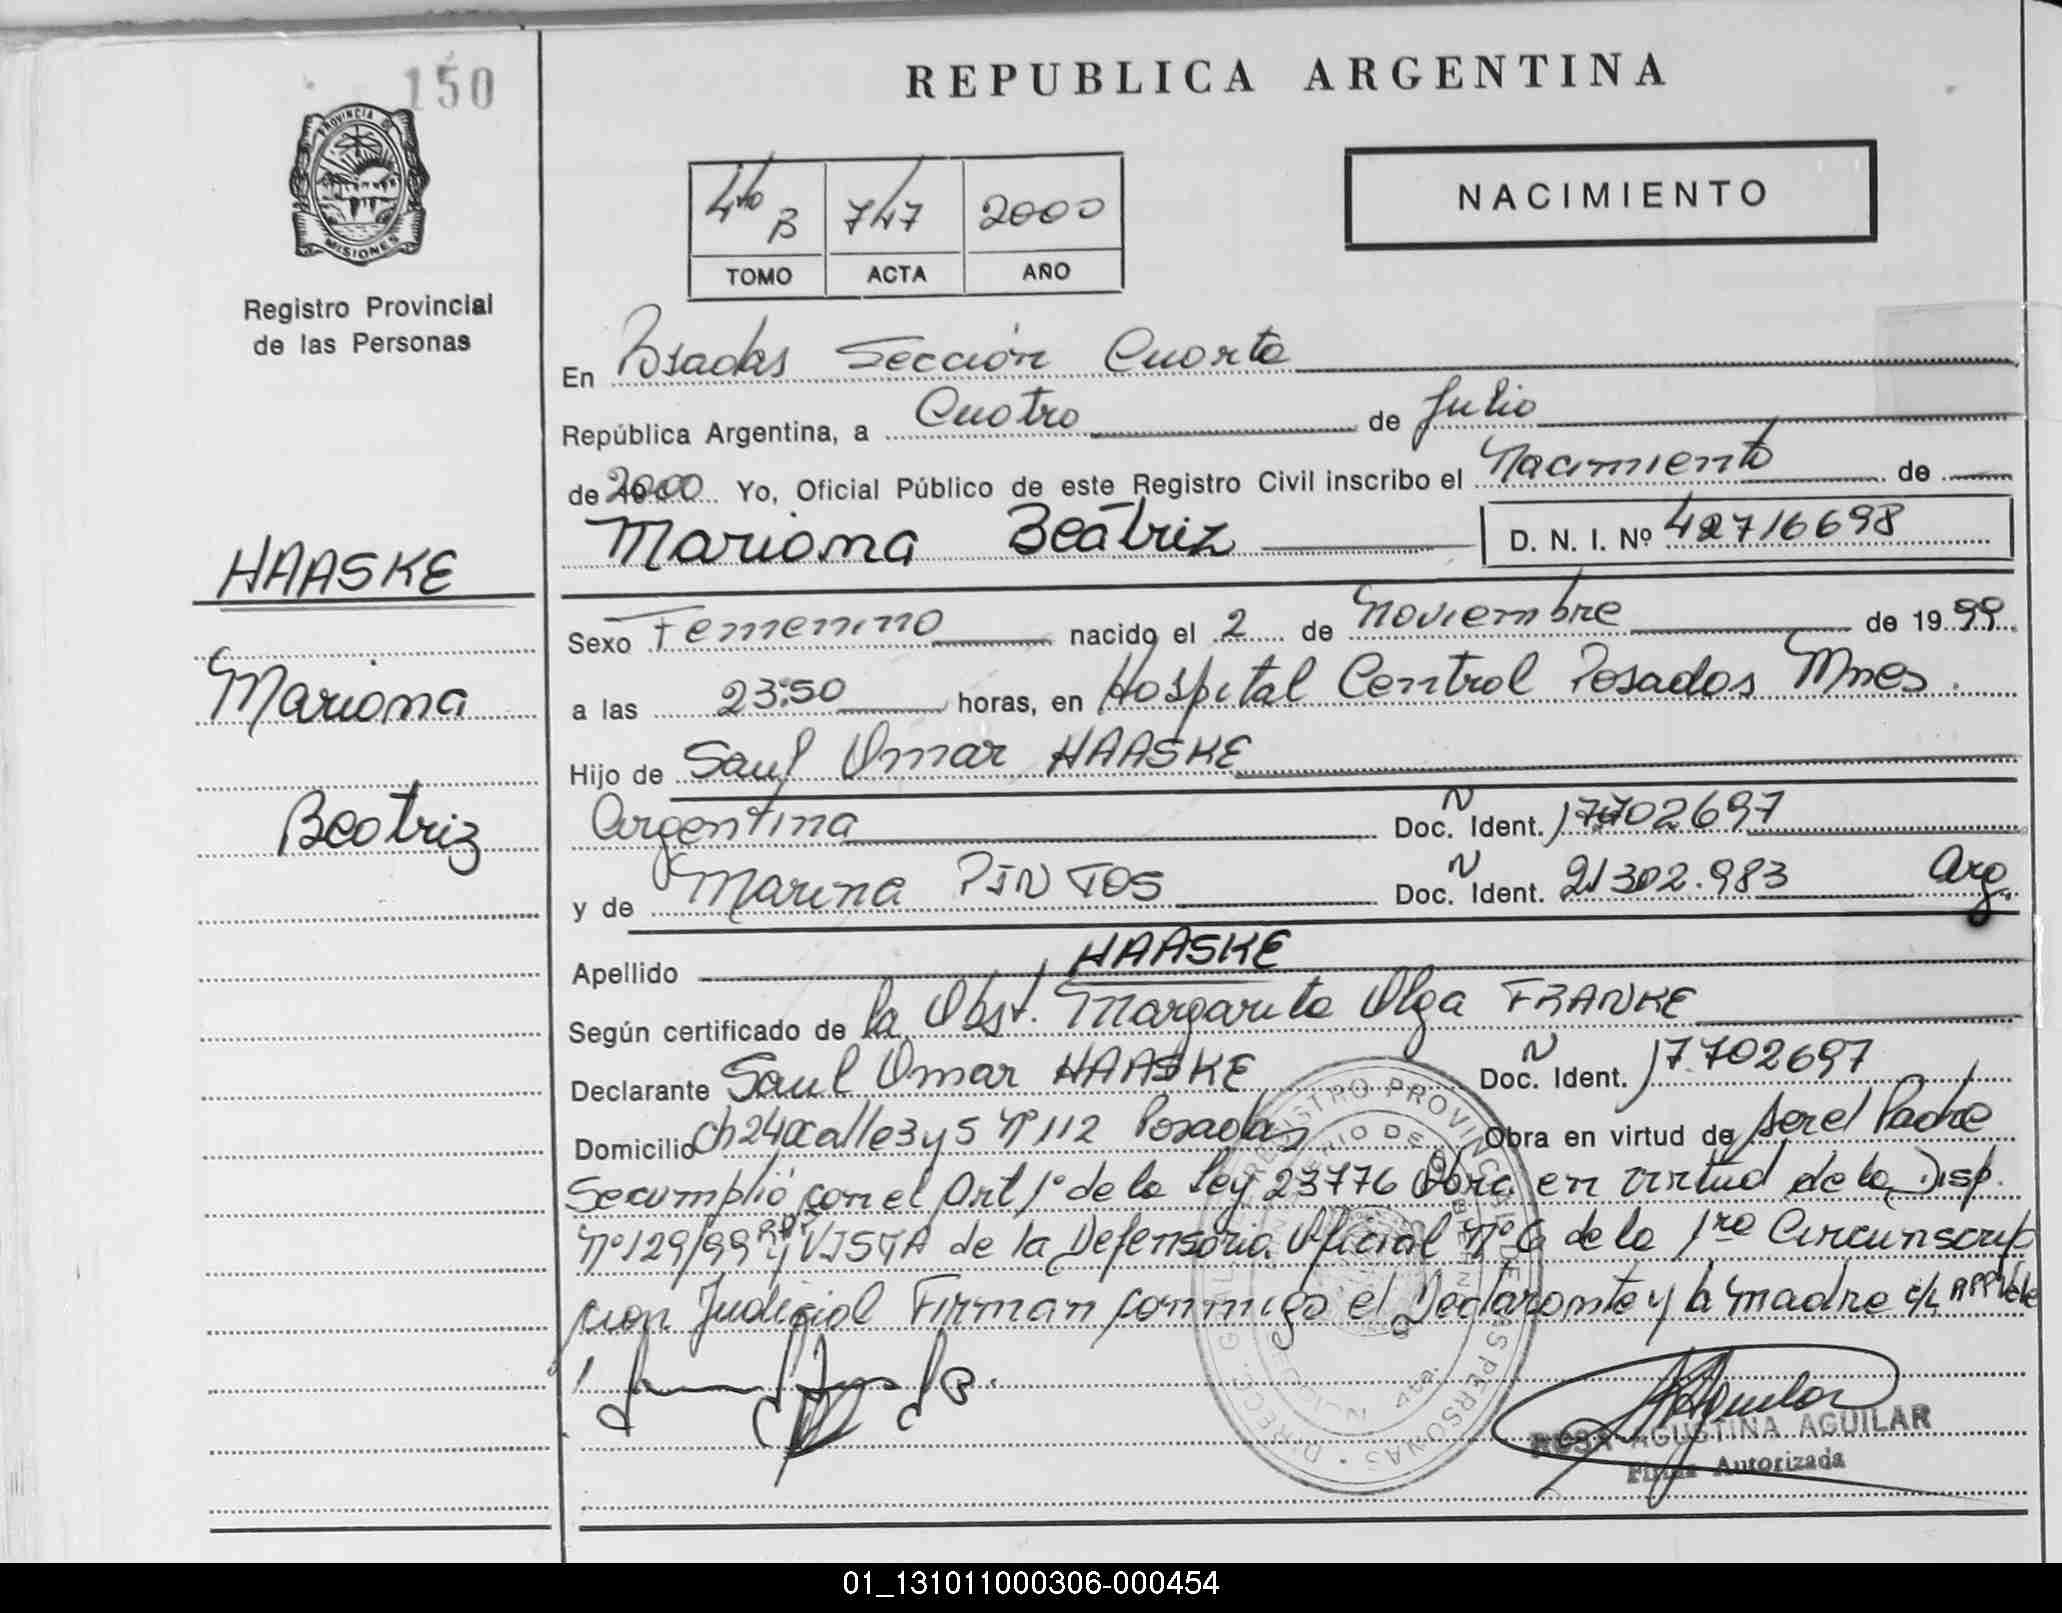 150
REPUBLICA ARGENTINA
PROVINCIA D
MISIONES
Registro Provincial
de las Personas
4to B 747 2000
TOMO ACTA AÑO
NACIMIENTO
En Posadas Sección Cuarta
República Argentina, a Cuatro de Julio
de 2000 Yo, Oficial Público de este Registro Civil inscribo el Nacimiento de
Mariana Beatriz D. N. I. Nº 42716698
HAASKE
Mariana
Beatriz
Sexo Femenino nacido el 2 de Noviembre de 1999
a las 23:50 horas, en Hospital Central Posadas Mnes.
Hijo de Saul Omar HAASKE
Argentina Doc. N Ident. 17702697
y de Marina PINTOS Doc. N Ident. 21302.983 Arg.
Apellido HAASKE
Según certificado de la Obst. Margarita Olga FRANKE
Declarante Saul Omar HAASKE Doc. N Ident. 17.702697
Domicilio Ch 240 calle 3 y 5 Nº 112 Posadas Obra en virtud de ser el Padre
Se cumplió con el Art 1º de la Ley 23776 Obra en virtud de la Disp.
Nº 129/99 y VISTA de la Defensoria Oficial Nº 6 de la 1ra Circunscrip
cion Judicial Firman conmigo el Declarante y la madre
ROSA AGUSTINA AGUILAR
Firma Autorizada
01_131011000306-000454